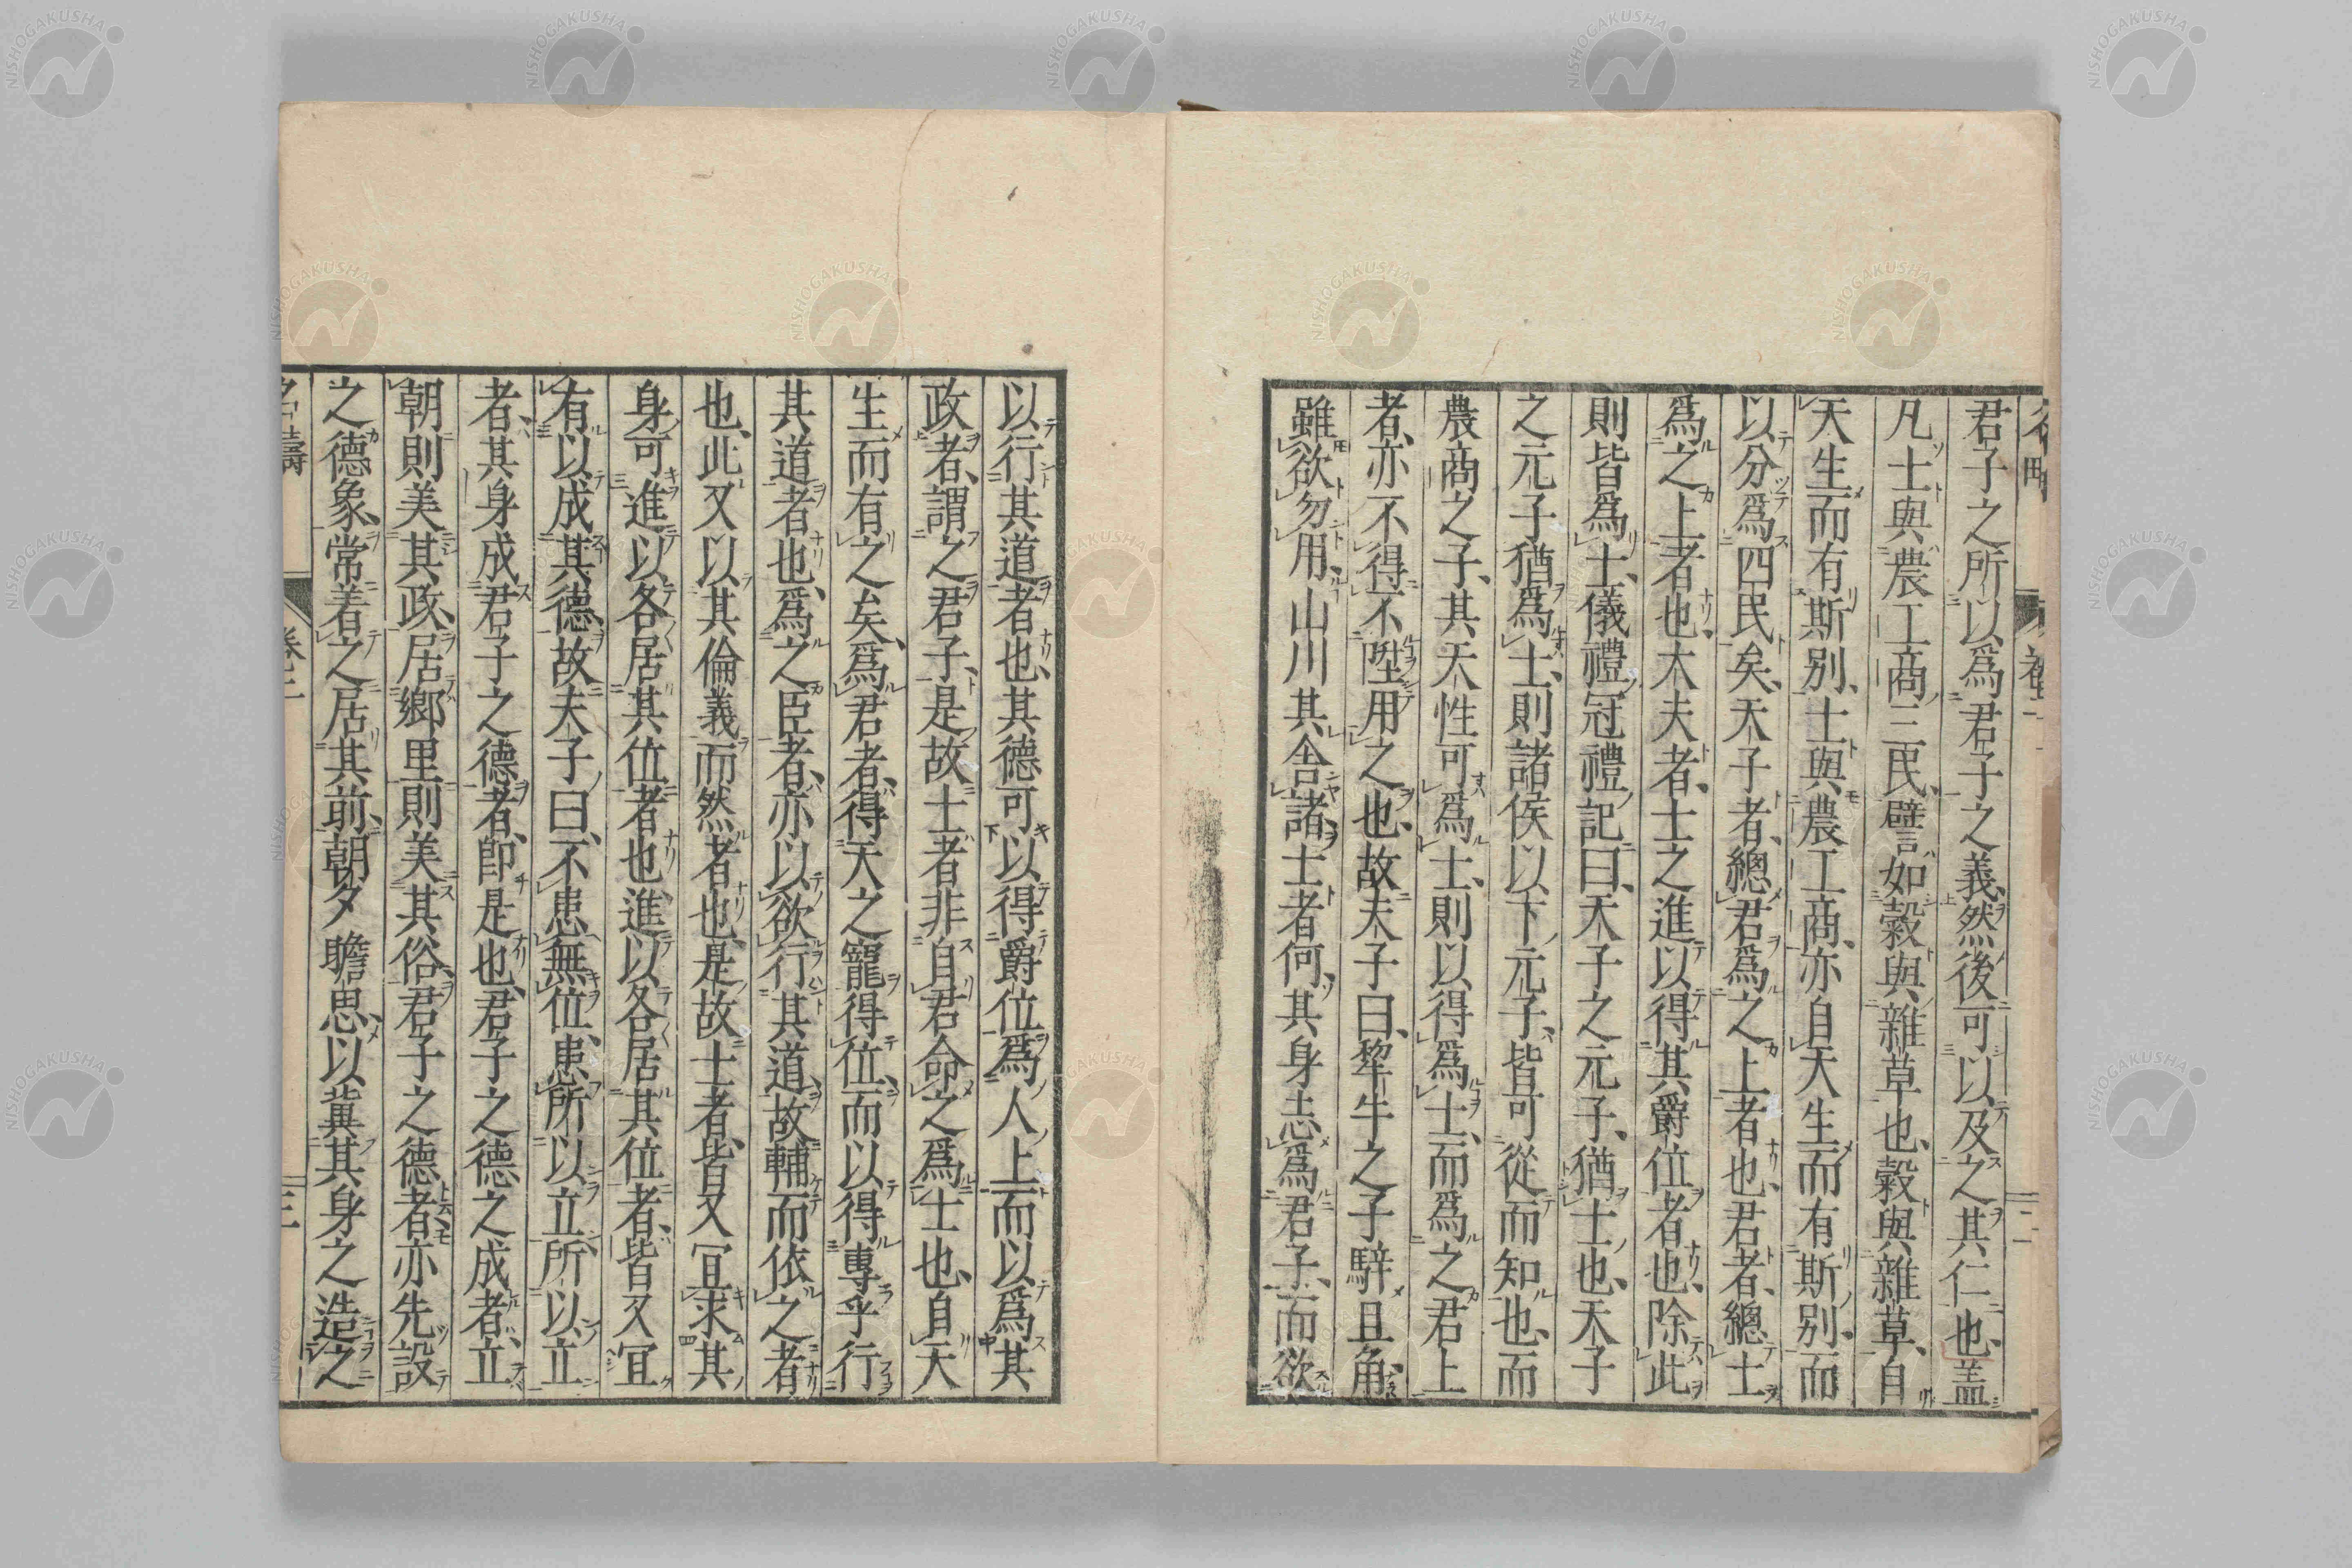 君子之所以爲君子之義、然後可以及之其仁也、蓋
凡士與農工商三民、譬如穀與雜草也、穀與雜草、自
天生而有斯別、士與農工商、亦自天生而有斯別、而
以分爲四民矣、天子者、總君爲之上者也、君者、總士
爲之上者也、大夫者、士之進以得其爵位者也、除此
則皆爲士、儀禮冠禮記曰、天子之元子、猶士也、天子
之元子猶爲士、則諸侯以下元子、皆可從而知也、而
農商之子、其天性可爲士、則以得爲士、而爲之君上
者、亦不得不陞用之也、故夫子曰、犂牛之子騂且角、
雖欲勿用、山川其舍諸、士者何、其身志爲君子、而欲
以行其道者也、其德可以得爵位爲人上而以爲其
政者、謂之君子、是故士者非自君命之爲士也、自天
生而有之矣、爲君者、得天之寵得位、而以得專乎行
其道者也、爲之臣者、亦以欲行其道、故輔而依之者
也、此又以其倫義而然者也、是故士者、皆又冝求其
身可進以各居其位者也、進以各居其位者、皆又冝
有以成其德、故夫子曰、不患無位、患所以立、所以立
者、其身成君子之德者、卽是也、君子之德之成者、立
朝則美其政、居鄉里則美其俗、君子之德者、亦先設
之德象、常着之居其前、朝夕瞻思、以冀其身之造之
名疇
卷三
三
NISHOGAKUSHA